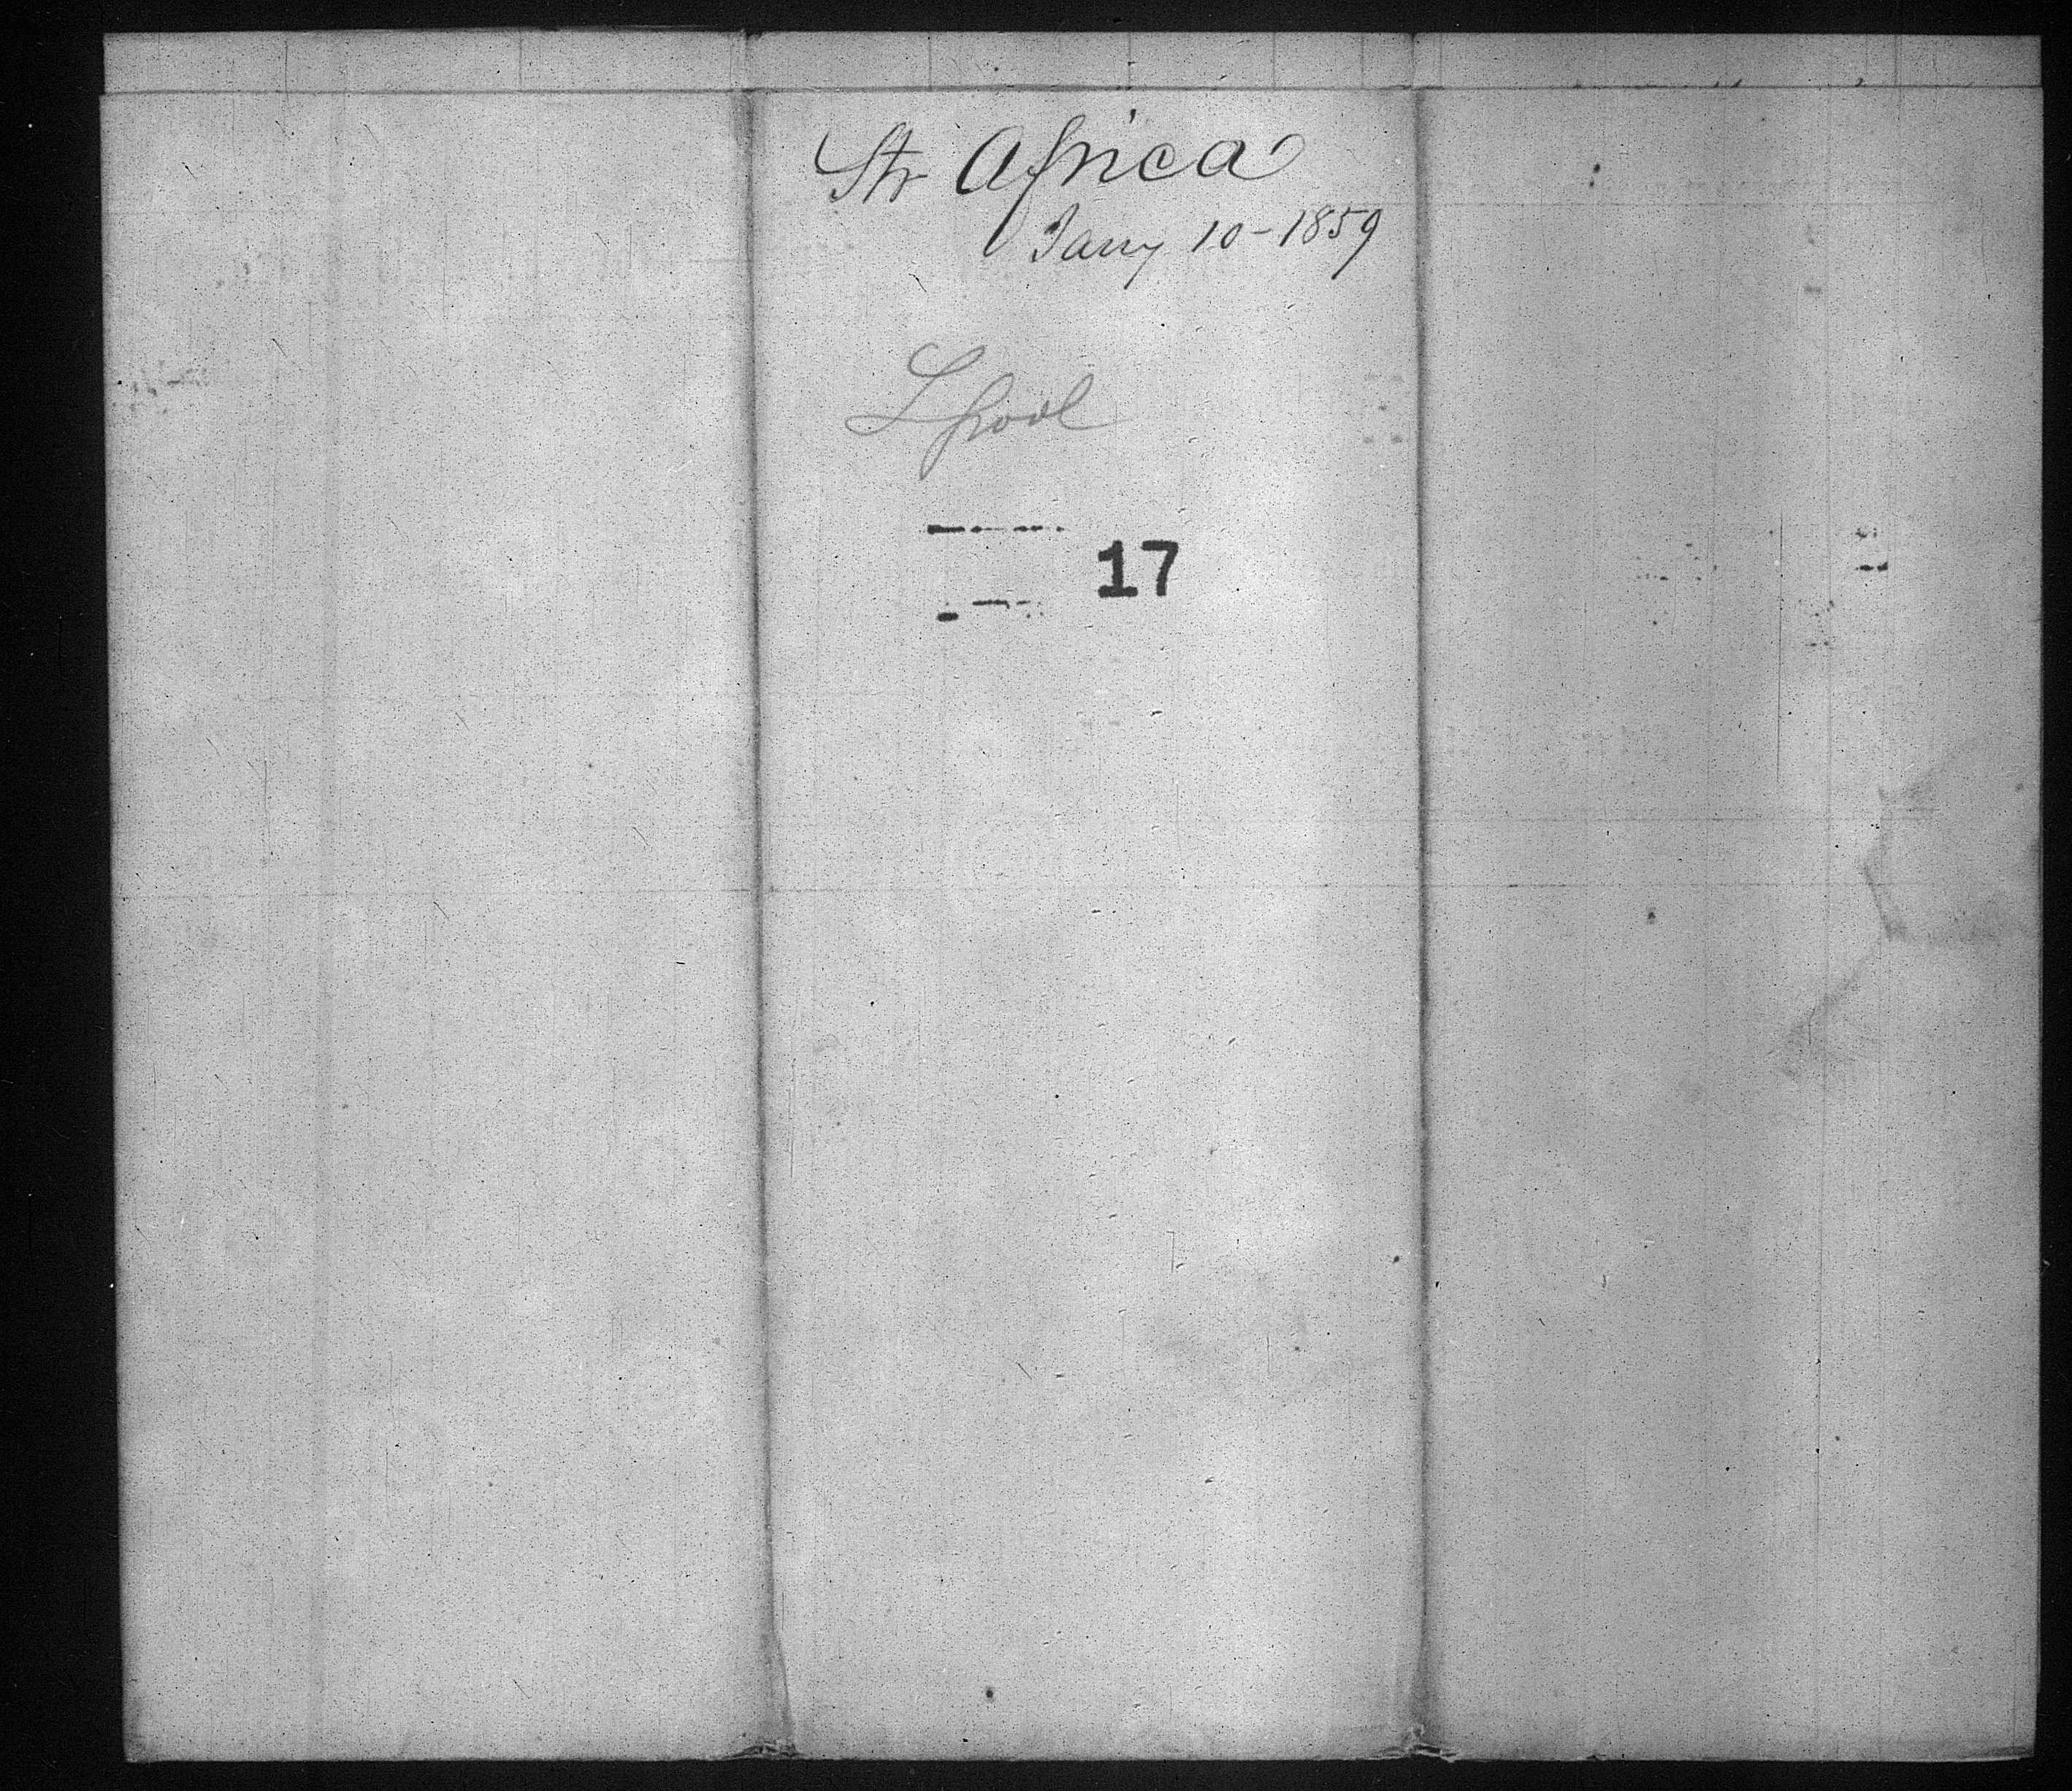 Str Africa
Jany 10-1859
Lpool
17